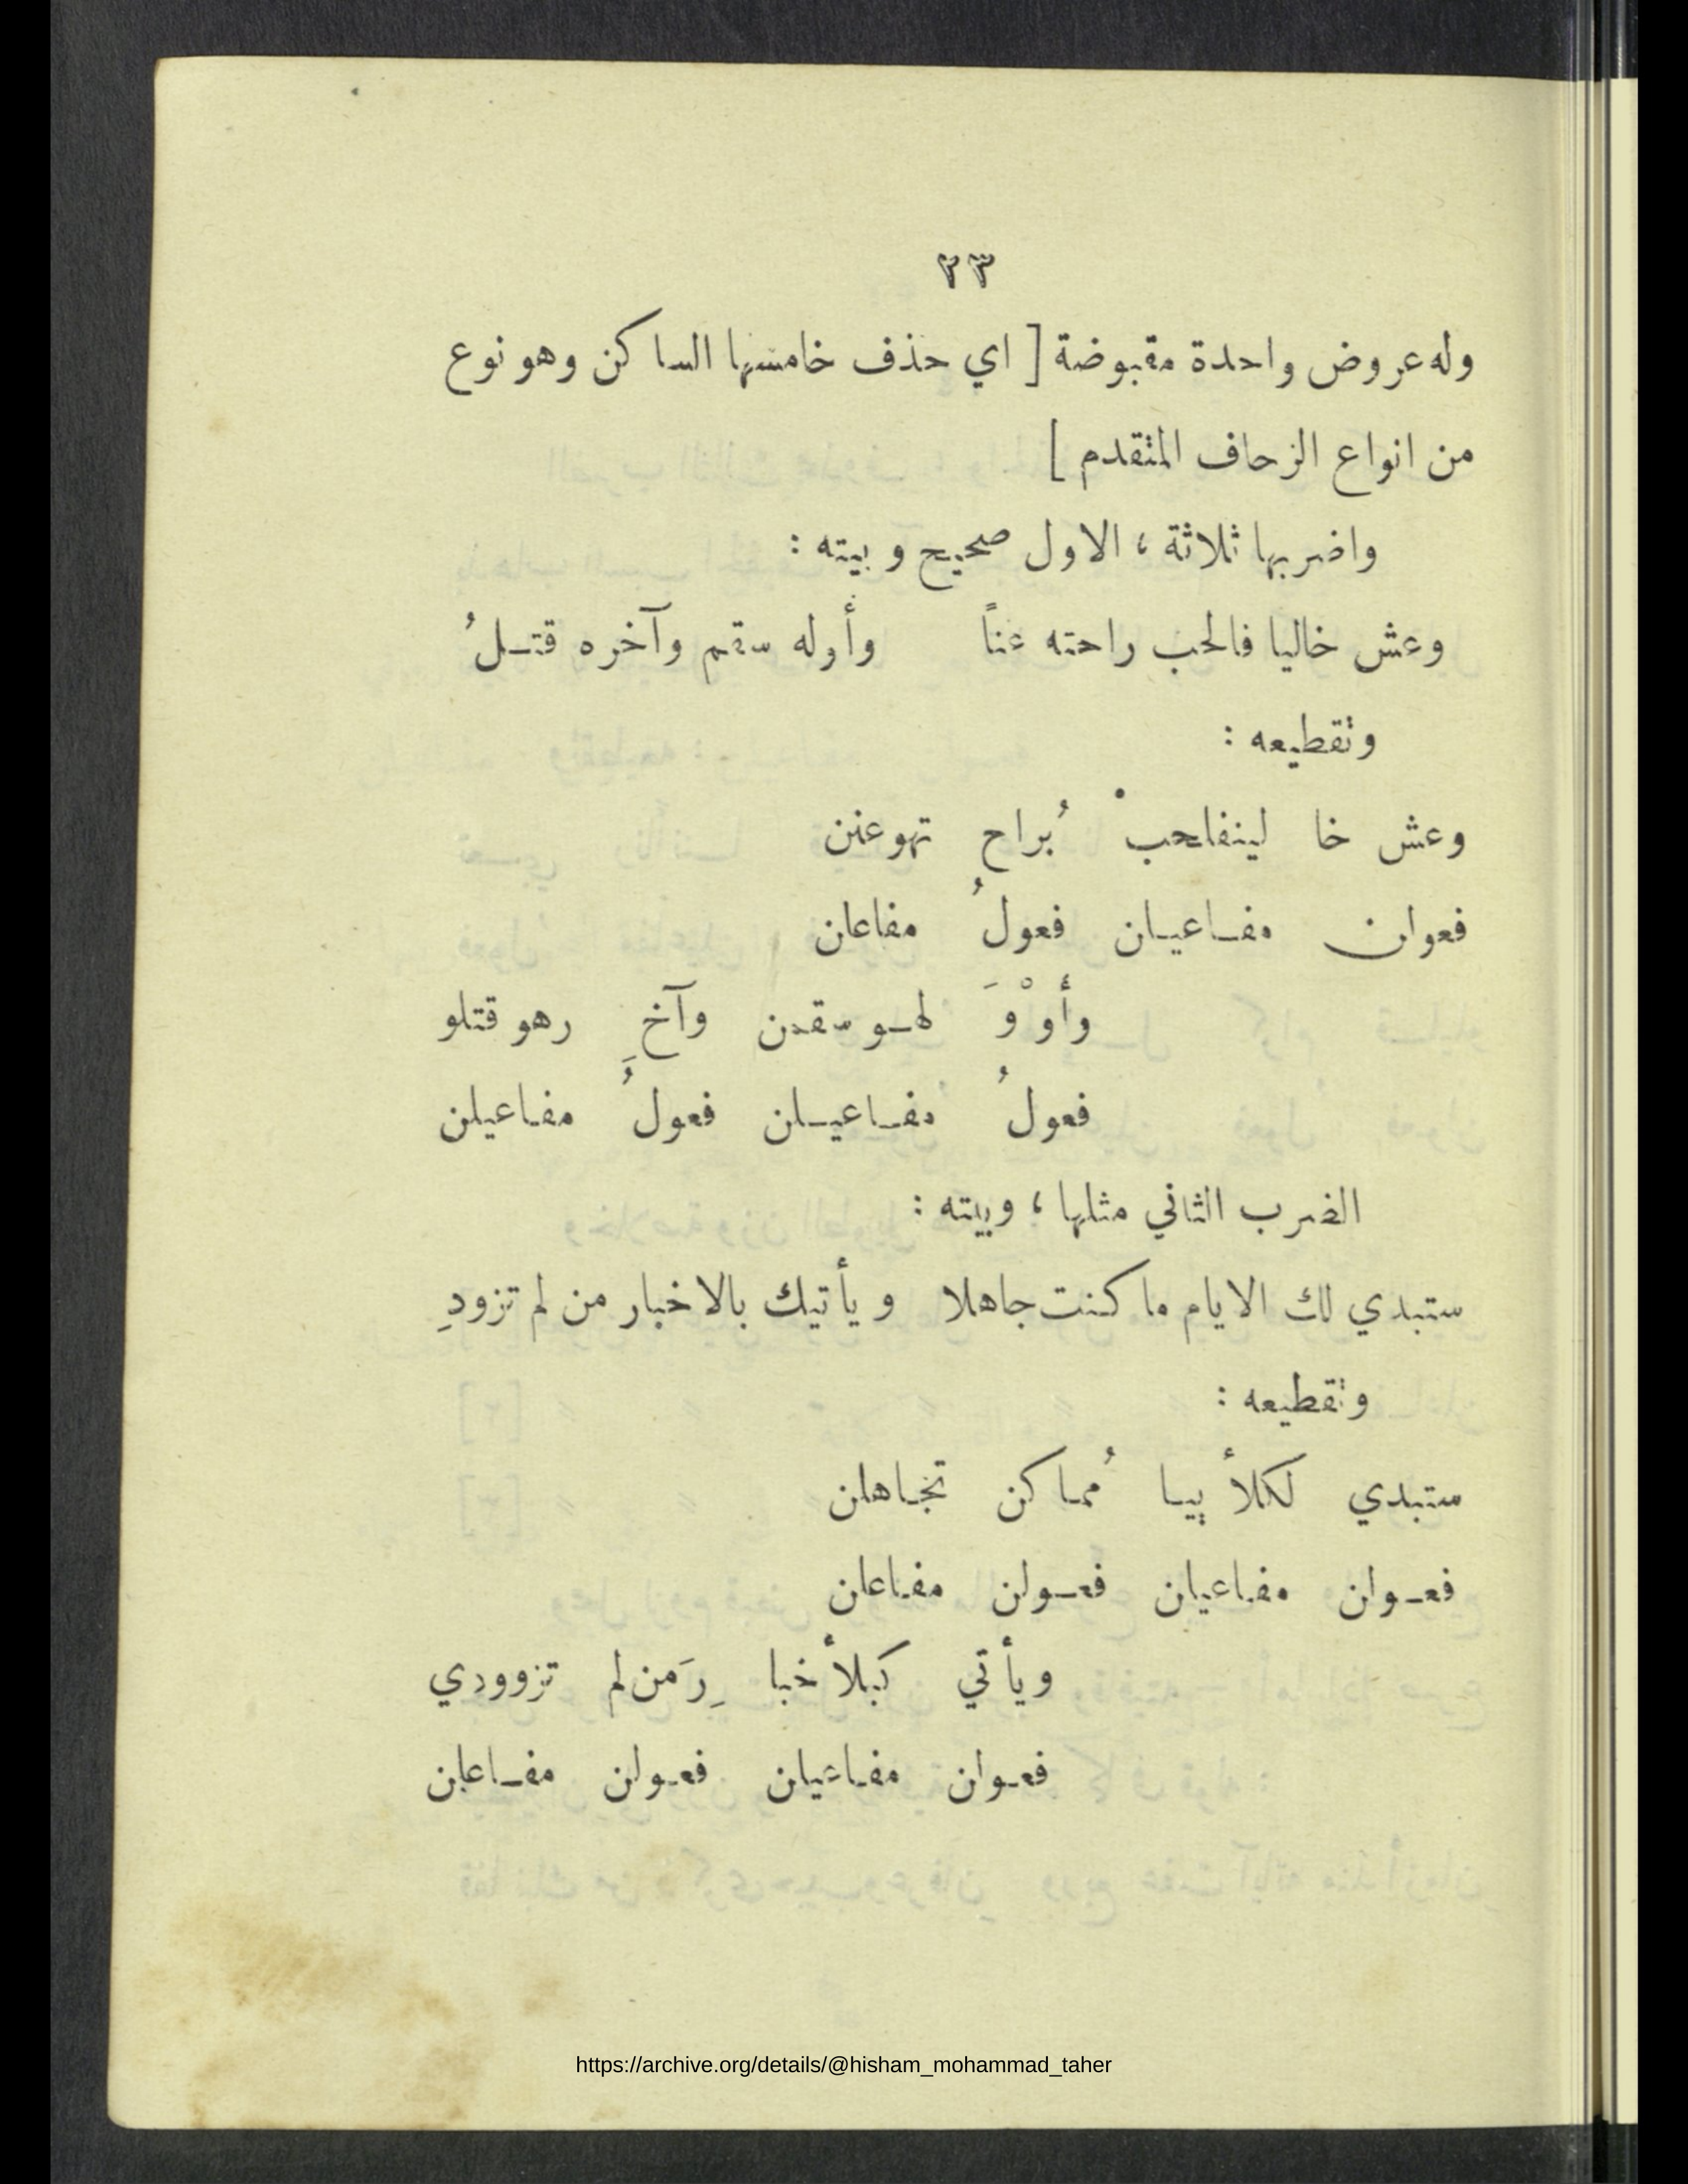 ٢٣
وله عروض واحدة مقبوضة [ اي حذف خامسها الساكن وهو نوع
من انواع الزحاف المتقدم ]
واضربها ثلاثة ، الاول صحيح وبيته :
وعش خاليا فالحب راحته عناً وأوله سقم وآخره قتـلُ
وتقطيعه :
وعش خا لينفاحبْ بُراح تهوعنن
فعولن مفـاعيـلن فعولُ مفاعلن
وأوْوَ لهـو سقمن وآخِ رهو قتلو
فعولُ مفـاعيـلن فعولُ مفاعيلن
الضرب الثاني مثلها ، وبيته :
ستبدي لك الايام ما كنت جاهلا ويأتيك بالاخبار من لم تزودِ
وتقطيعه :
ستبدي لكلأييـا مُما كن تجـاهلن
فعـولن مفـاعيلن فعـولن مفـاعلن
ويأتي كبلأخبا رِمَن لم تزوودي
فعـولن مفـاعيلن فعـولن مفـاعلن
https://archive.org/details/@hisham_mohammad_taher